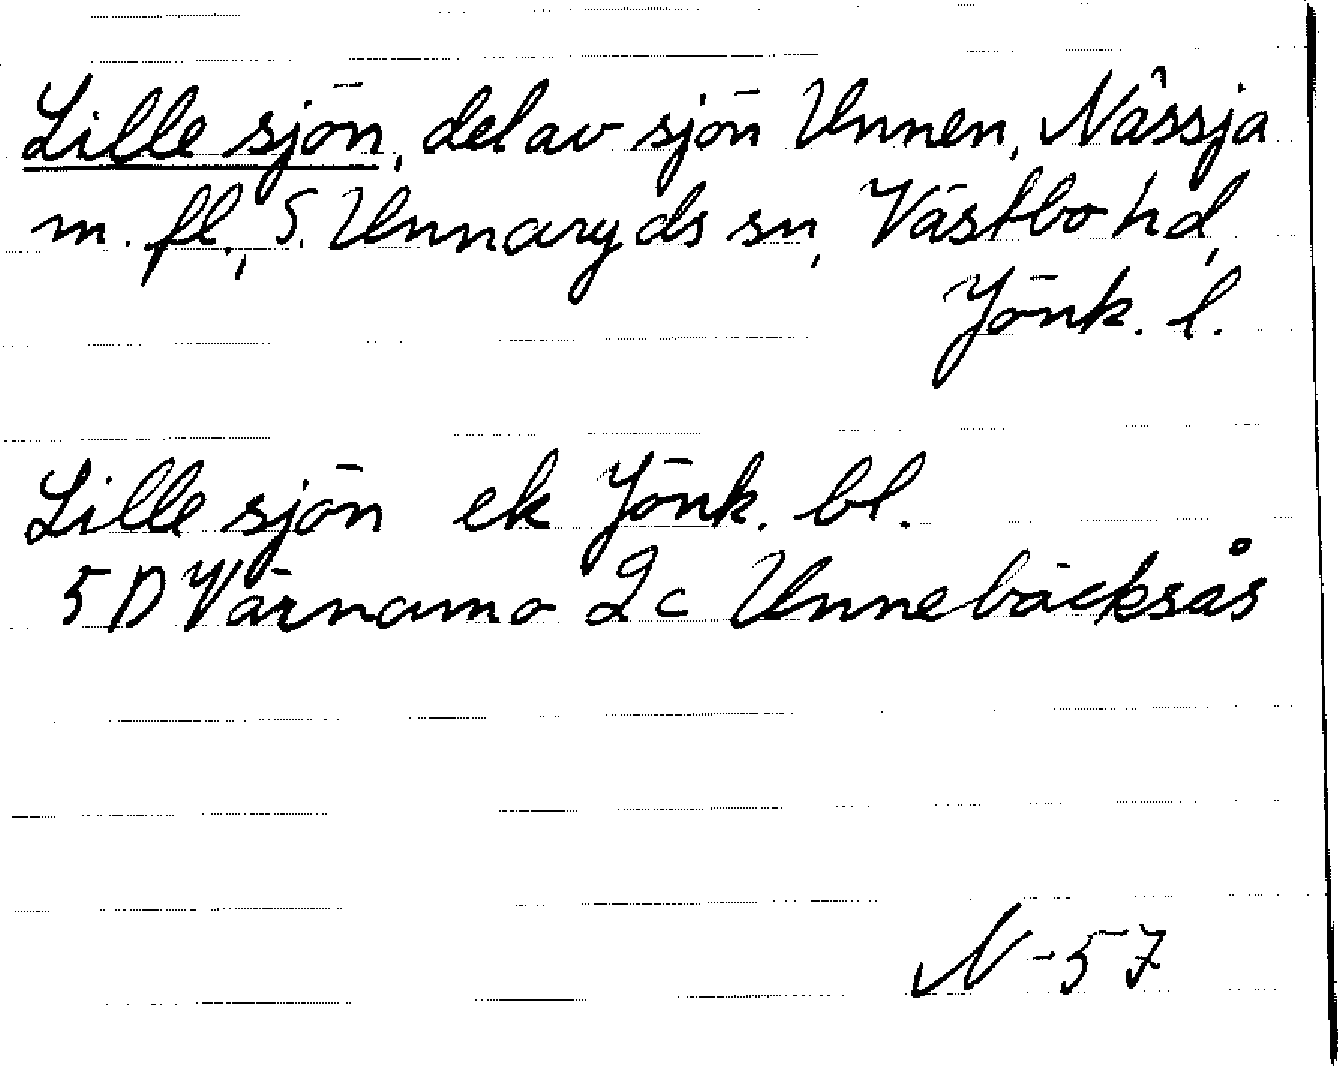 Lille sjön, del av sjön Unnen, Nässja
m. fl., S. Unnaryds sn, Västbo hd,
Jönk. l.
Lille sjön ek Jönk. bl.
5D Värnamo 2c Unnebäcksås
N-57